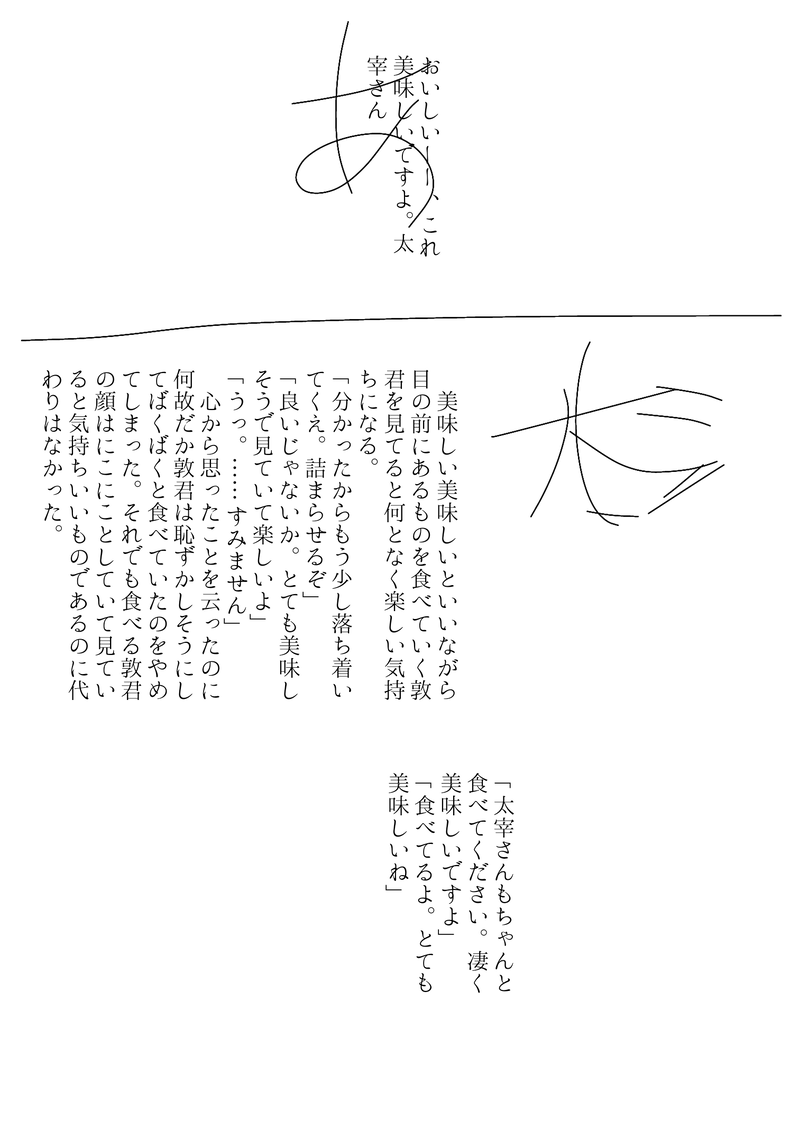 おいしいーー、これ
美味しいですよ。太
宰さん
あ
太
美味しい美味しいといいながら
目の前にあるものを食べていく敦
君を見てると何となく楽しい気持
ちになる。
「分かったからもう少し落ち着い
てくえ。詰まらせるぞ」
「良いじゃないか。とても美味し
そうで見ていて楽しいよ」
「うっ。……すみません」
心から思ったことを云ったのに
何故だか敦君は恥ずかしそうにし
てばくばくと食べていたのをやめ
てしまった。それでも食べる敦君
の顔はにこにことしていて見てい
ると気持ちいいものであるのに代
わりはなかった。
「太宰さんもちゃんと
食べてください。凄く
美味しいですよ」
「食べてるよ。とても
美味しいね」